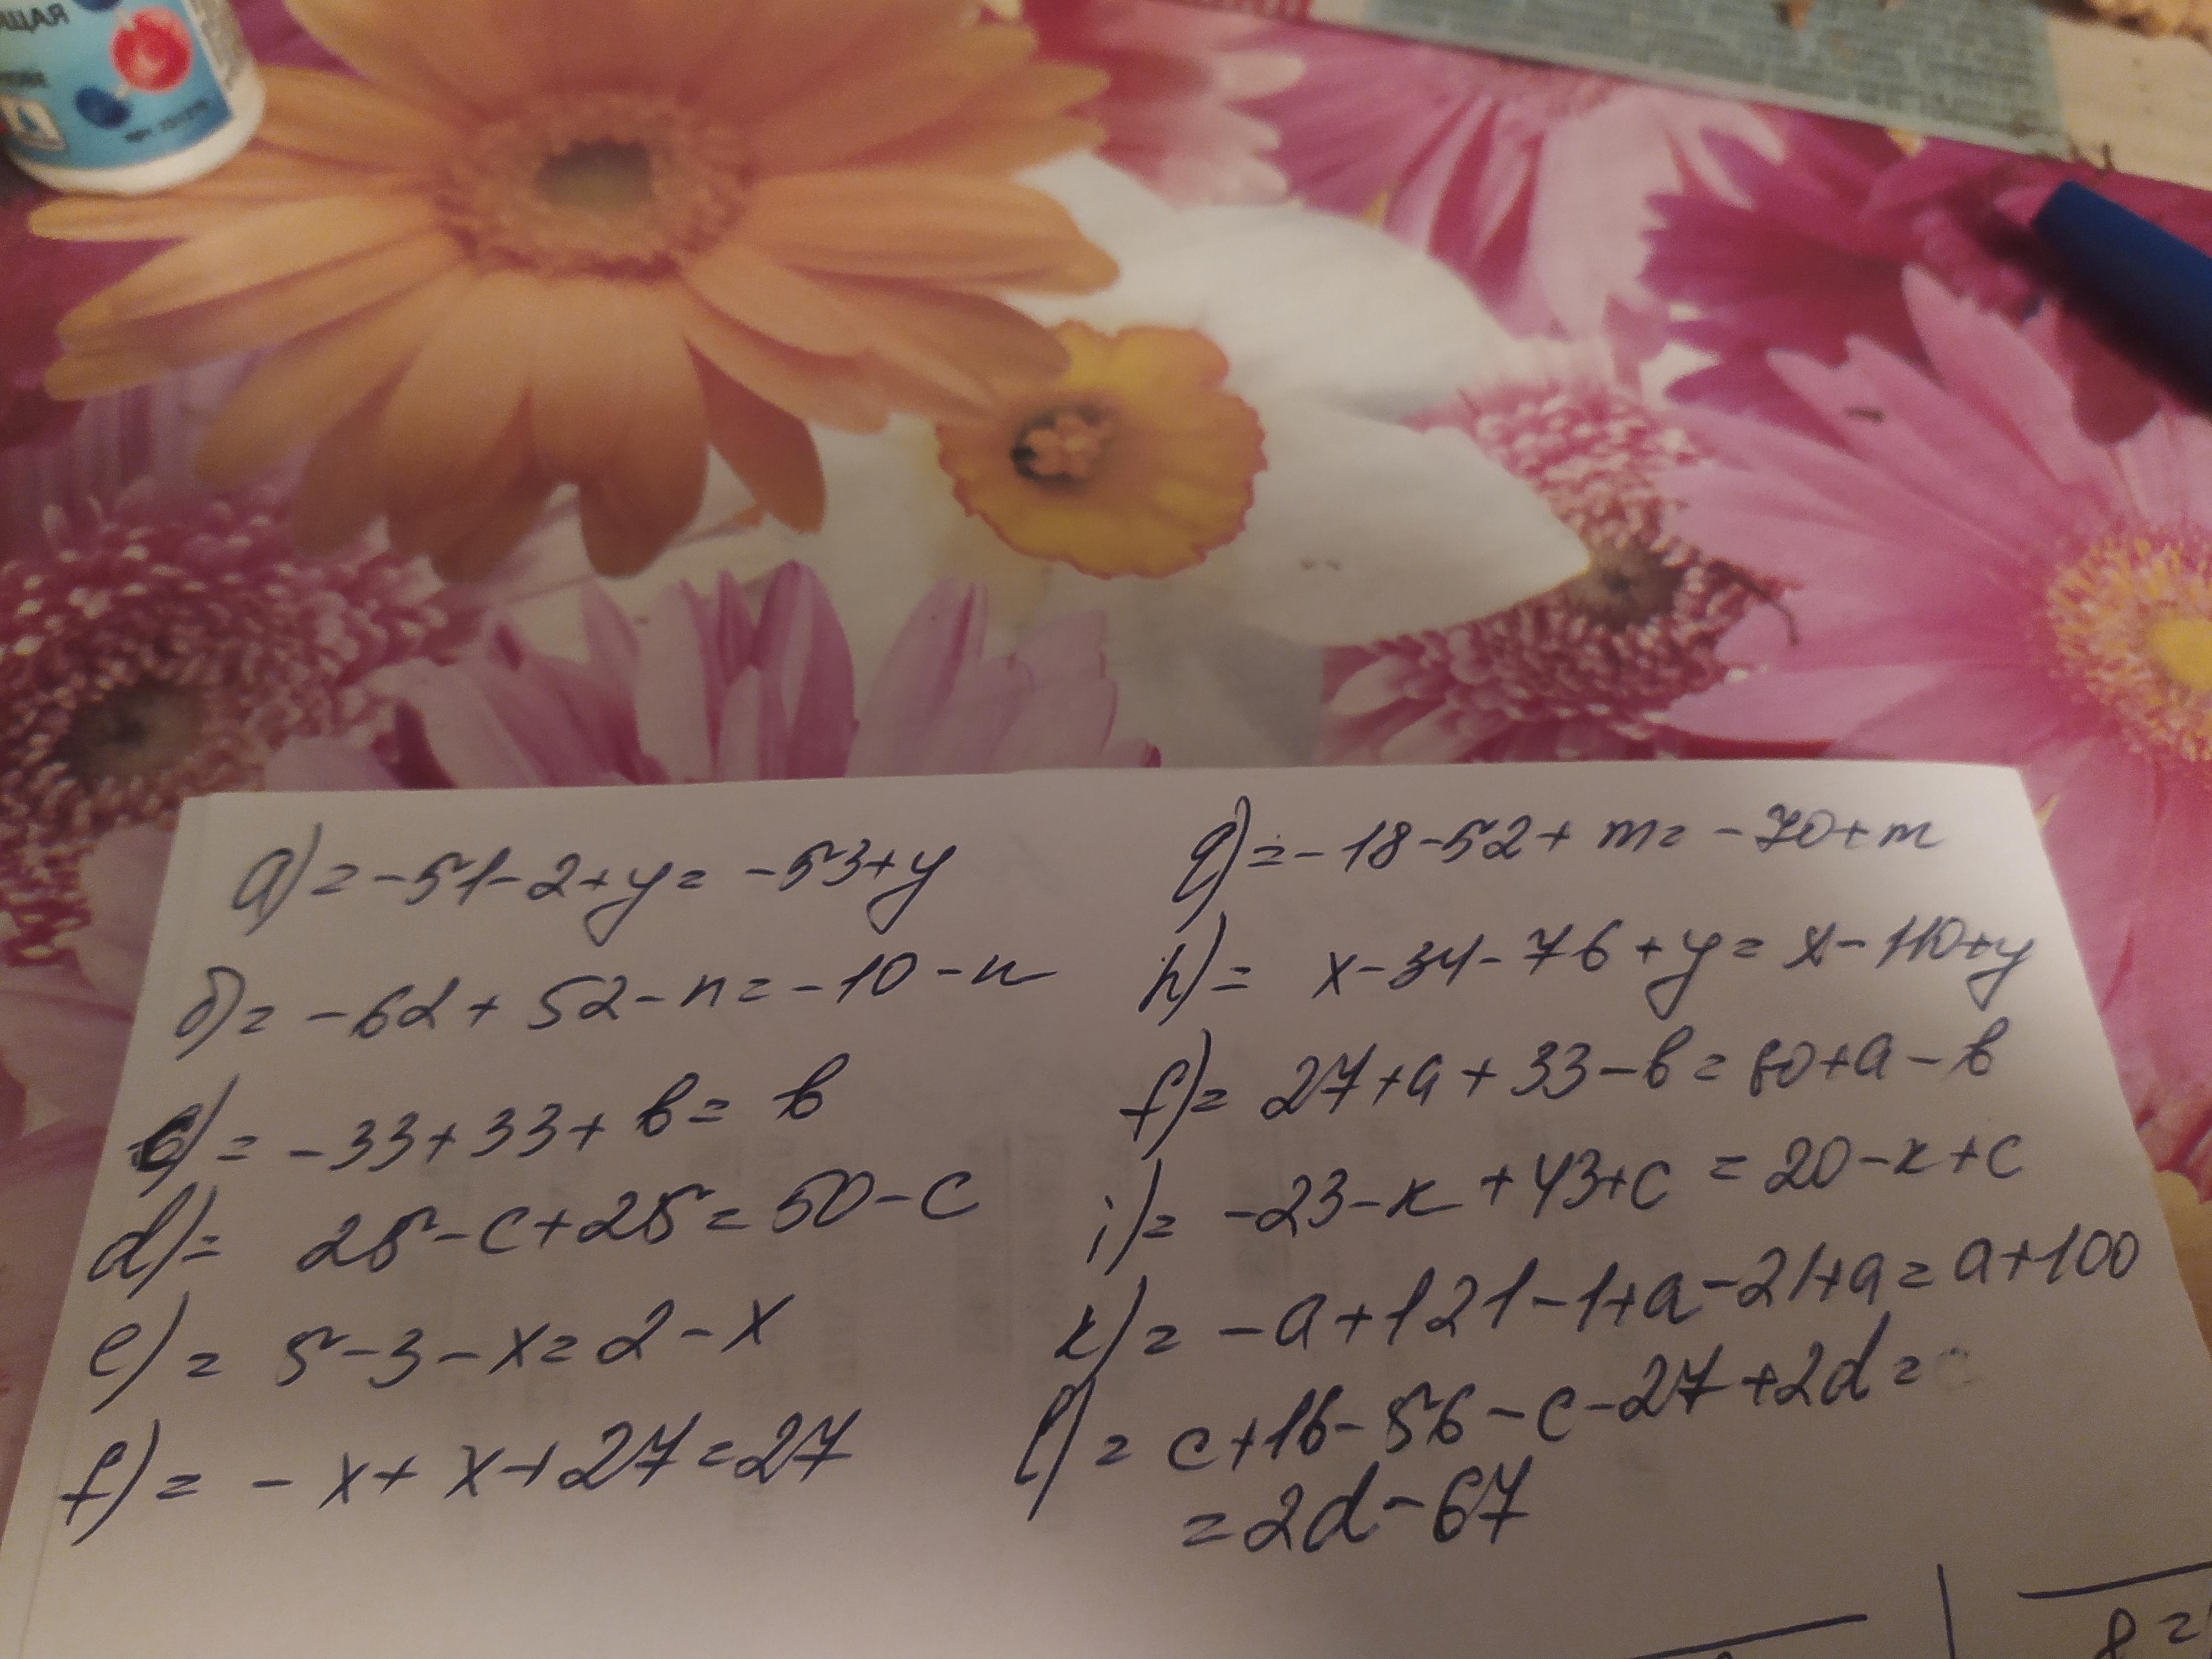 ЩАЯ
a) = -51-2+y = -53+y
б) = -62 + 52 - n = -10 - n
c) = -33+33+b = b
d) = 25-c+25 = 50-c
e) = 5-3-x = 2-x
f) = -x+x+27 = 27
q) = -18-52+m = -70+m
h) = x-34-76+y = x-110+y
f) = 27+a+33-b = 60+a-b
i) = -23-к+43+c = 20-к+c
к) = -a+121-1+a-21+a = a+100
l) = c+16-56-c-27+2d =
= 2d-67
8 =